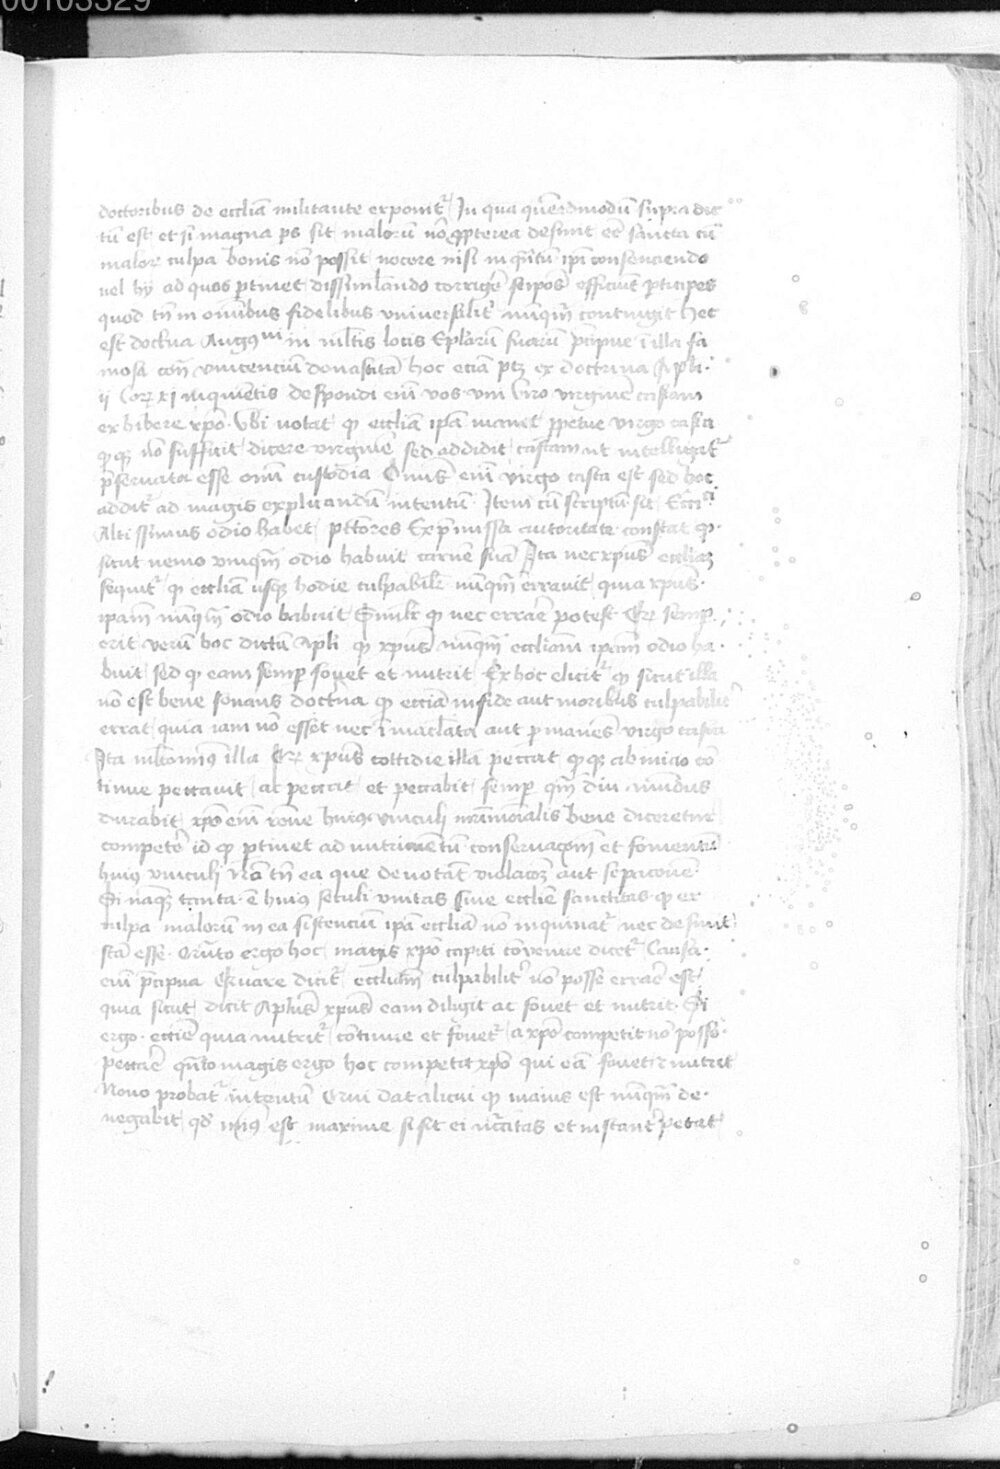 00103329
doctoribus de eccliā militante exponit᷑ In qua quēadmodū supra dic
tū est et si magna ps sit malorū nō ꝓpterea desinit eē sancta cū
malor culpa bonis nō possit nocere nisi in qͣntū ipi consenciendo
uel hy ad quos ꝑtinet dissimilando corrigē˜ seipos efficiunt ꝑticipes
quod tn̄ in omībus fidelibus vniuersalit᷑ nūqͣm contingit Hec
est doctna Augꝰⁱⁿⁱ in ml̄tis locis Eplarū suarū p̄cipue ī illa fa
mosa con͛ vincenciū donastitā hoc eciā ptꝫ ex doctrina Apli
ij Corꝝ xj inquiētis despondi em̄ vos vni viro virginē castam
exhibere xpō Vbi notat qꝫ eccliā ipā manet ꝑpetue virgo casta
nō suffic̄it dicere virginē sed addidit castam ut intelligat᷑
p̄seruata esse omī custodia Omīs em̄ virgo casta est sed hoc
addit᷑ ad magis explicandū intentū Item cū scriptū sit Ecciⁱ
Altissimus odio habet pctores Ex p̄missa autoritate constat ꝙ
sicut nemo vnqͣm odio habuit carnē suā Ita nec xpūs eccliaꝫ
sequit᷑ ꝙ eccliā usqꝫ hodie culpabilr nūqͣm errauit quia xpūs
ipam nūqͣm odio habuit Similr ꝙ nec errare potest Qꝛ semꝑ
erit verū hoc dictū apli ꝙ xpūs nūqͣm eccliam ipam odio ha
buit sed ꝙ eam semꝑ fouet et nutrit Ex hoc elicit᷑ ꝙ sicut illa
nō est bene sonans doctna ꝙ eccīa in fide aut moribus culpabilit᷑
errat quia iam nō esset nec īmaclata aut ꝑmanēs virgo casta
Ita ml̄tominꝰ illa Qꝛ xpūs cottidie illā peccat ab inicio cō
tinue peccauit ac peccat et peccabit semꝑ qͣm diu mūdus
durabit xpō em̄ rōne huiꝰ vinculi mr̄imonialis bene diceretur
competē˜ id qꝫ ꝑtinet ad nutrimētū conseruacōm et fomentū
huiꝰ vinculi Nō tn̄ ea que denotāt violacōꝫ aut sepacōnē
Si naqꝫ tanta ē huiꝰ seculi vnitas siue ecclīe sanctitas ꝙ ex
culpa malorū in ea sistenciū ipā eccliā nō inquinat᷑ nec desinit
stā esse Qͣnto ergo hoc magis xpō capiti cōuenire dicet᷑ Causā
em̄ p̄cipua Quare dicit᷑ eccliam culpabilit᷑ nō posse errare est
quia sicut dicit Aplūs xpūs eam diligit ac fouet et nutrit Si
ergo eccīe quia nutrit᷑ cōtinue et fouet᷑ a xpō competit nō posse
peccare qͣnto magis ergo hoc competit xpō qui eā fouet et nutrit
Nono probat᷑ intentū Cui dat alicui ꝙ maius est nūqͣm de
negabit qd̄ minꝰ est maxime si sit ei nc̄citas et instant᷑ petat